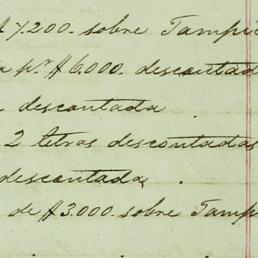 $7.200. sobre Tampi
a pr $6.000. descontad
descontada
2 letras descontadas
descontada
de $3.000. sobre Tamp